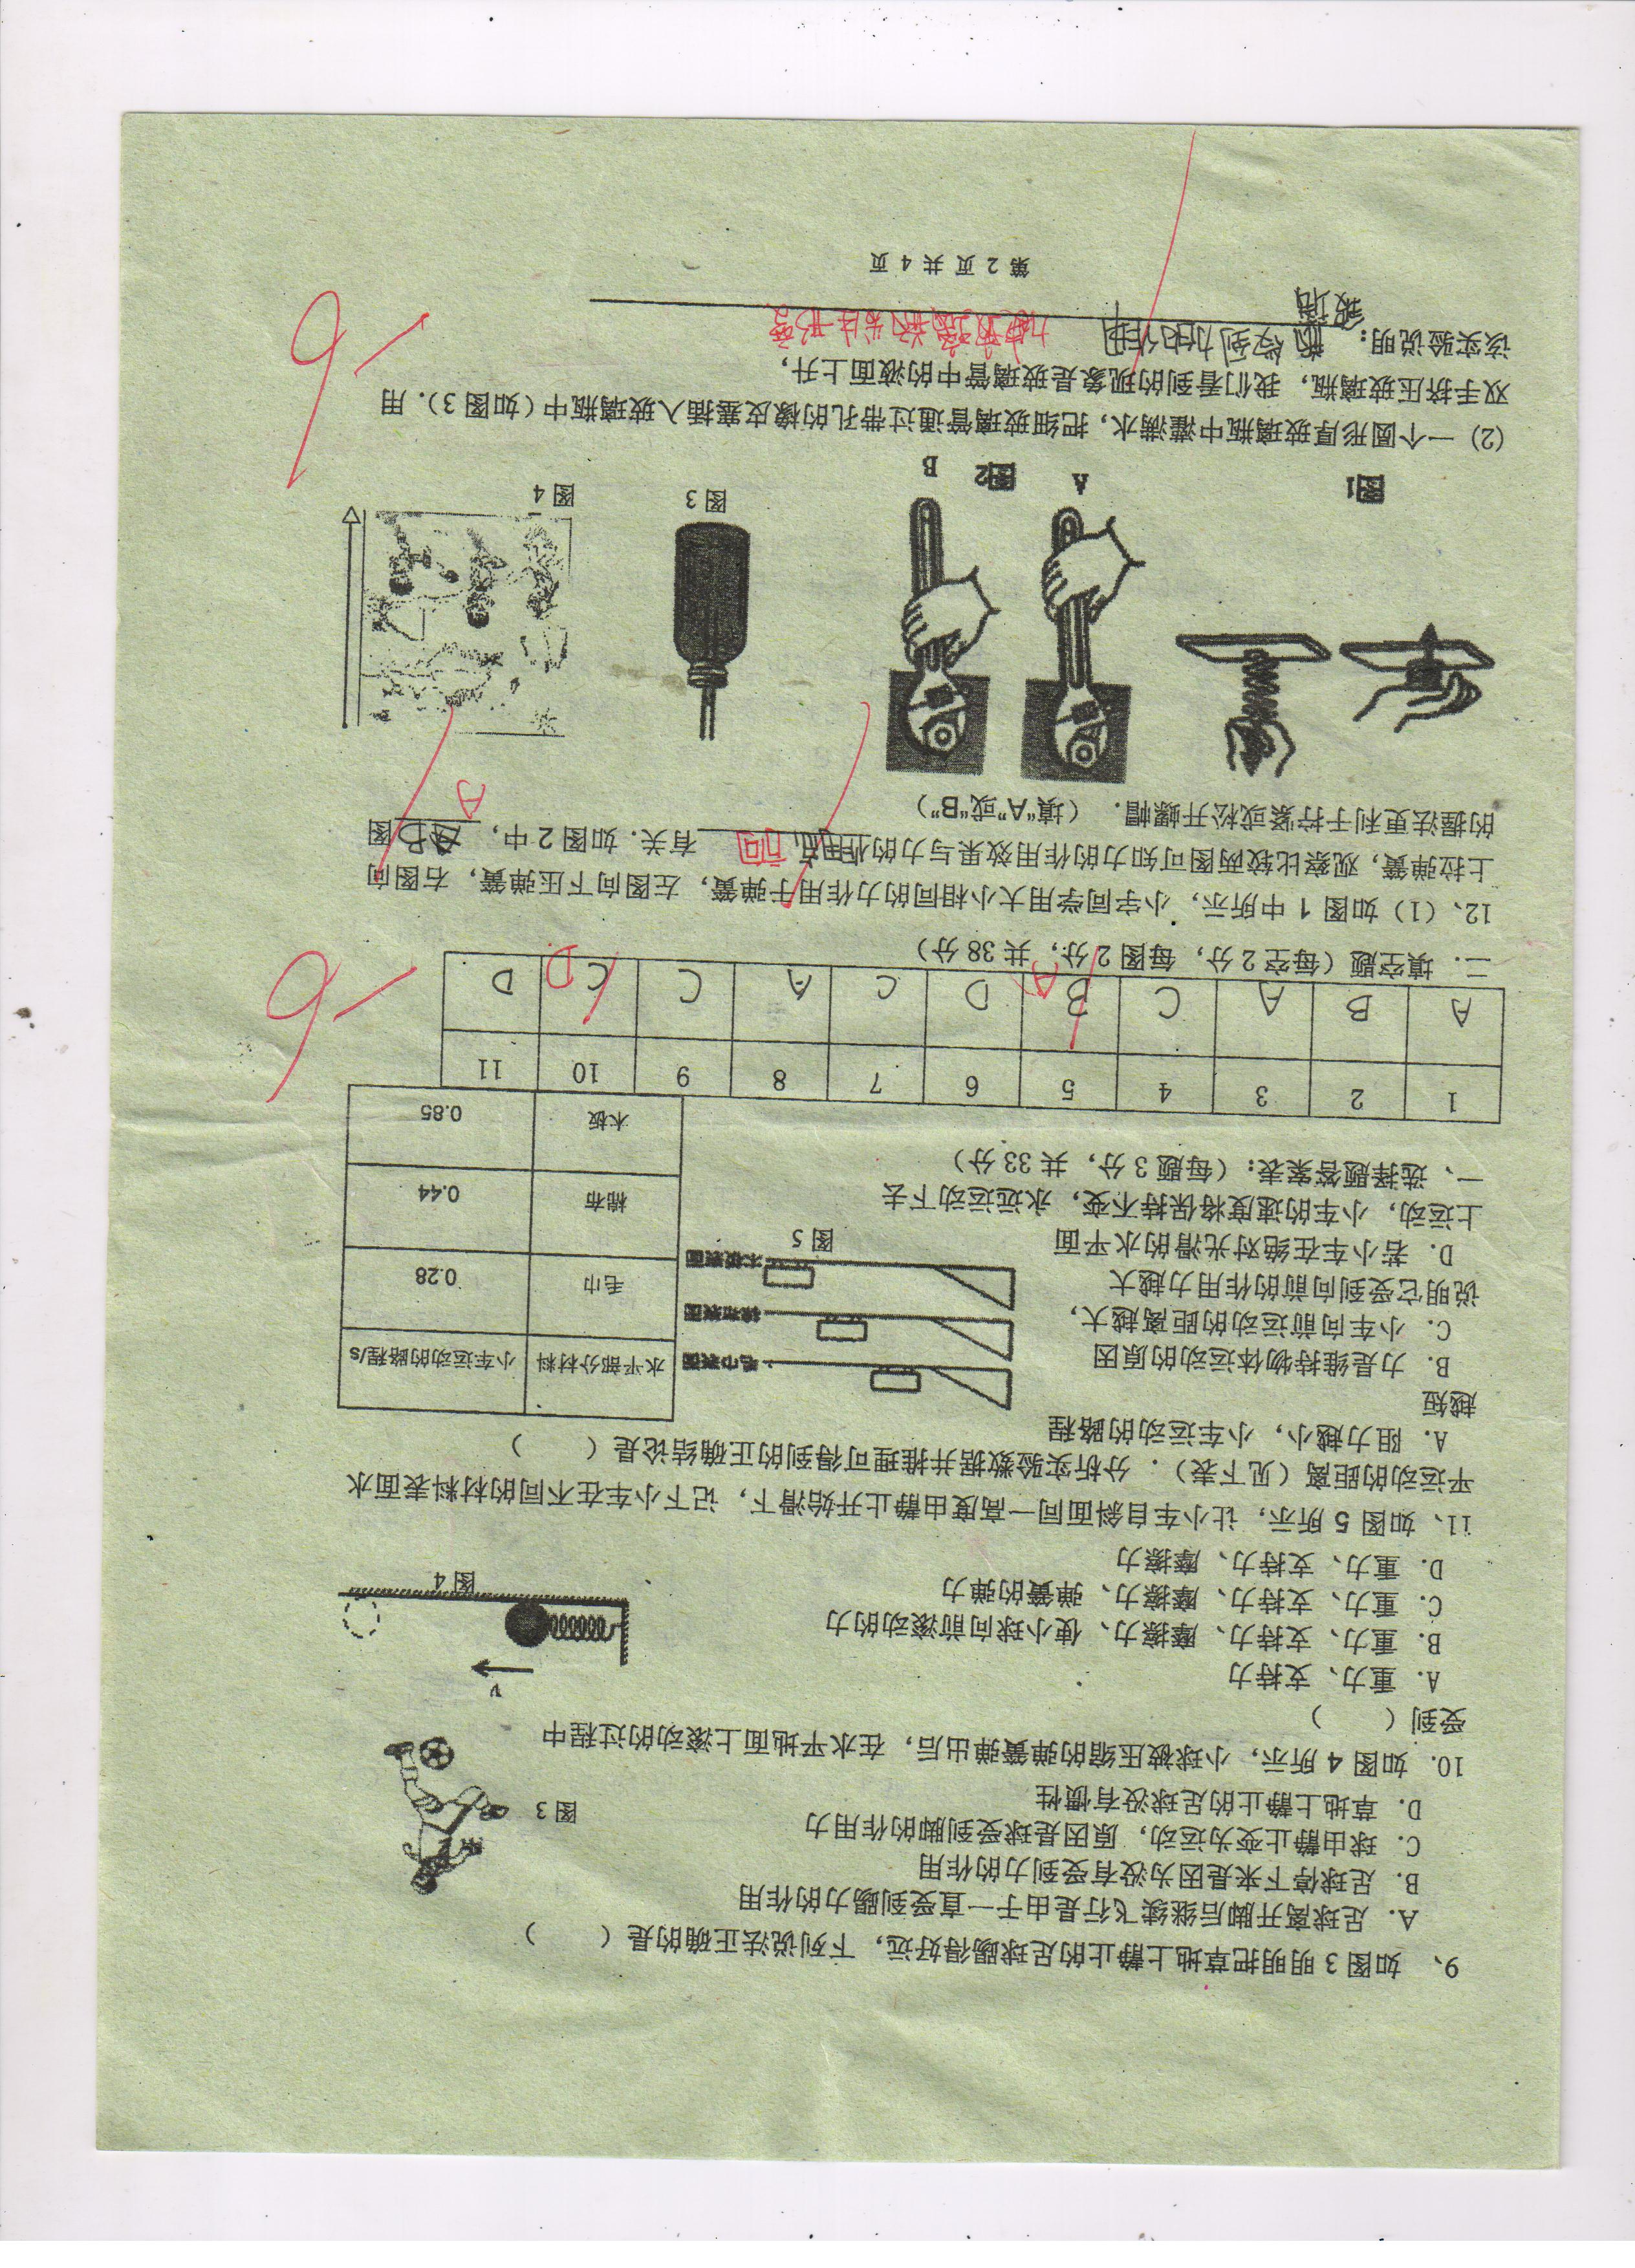 9、 如图 3 明明把草地上静止的足球踢得好远，下列说法正确的是（ ）
A. 足球离开脚后继续飞行是由于一直受到踢力的作用
B. 足球停下来是因为没有受到力的作用
C. 球由静止变为运动，原因是球受到脚的作用力
D. 草地上静止的足球没有惯性
图 3
10. 如图 4 所示，小球被压缩的弹簧弹出后，在水平地面上滚动的过程中
受到（ ）
A. 重力、支持力
B. 重力、支持力、摩擦力、使小球向前滚动的力
C. 重力、支持力、摩擦力、弹簧的弹力
D. 重力、支持力、摩擦力
v
图 4
11、如图 5 所示，让小车自斜面同一高度由静止开始滑下，记下小车在不同的材料表面水
平运动的距离（见下表）．分析实验数据并推理可得到的正确结论是（ ）
A. 阻力越小，小车运动的路程
越短
B. 力是维持物体运动的原因
C. 小车向前运动的距离越大，
说明它受到向前的作用力越大
D. 若小车在绝对光滑的水平面
上运动，小车的速度将保持不变，永远运动下去
毛巾表面
棉布表面
木板表面
图 5
水平部分材料 小车运动的路程/s
毛巾 0.28
棉布 0.44
木板 0.85
一、选择题答案表：（每题 3 分，共 33 分）
1 2 3 4 5 6 7 8 9 10 11
A B A C B D C A C C D
A D
二．填空题（每空 2 分，每图 2 分，共 38 分）
12、（1）如图 1 中所示，小宇同学用大小相同的力作用于弹簧，左图向下压弹簧，右图向
上拉弹簧，观察比较两图可知力的作用效果与力的作用点 方向 有关．如图 2 中， 图
A
的握法更利于拧紧或松开螺帽．（填“A”或“B”）
图1
A 图2 B
图 3
图 4
（2）一个圆形厚玻璃瓶中灌满水，把细玻璃管通过带孔的橡皮塞插入玻璃瓶中（如图 3）．用
双手挤压玻璃瓶，我们看到的现象是玻璃管中的液面上升，
该实验说明： 瓶受到力的作用 力使玻璃瓶发生形变
玻璃
第 2 页 共 4 页